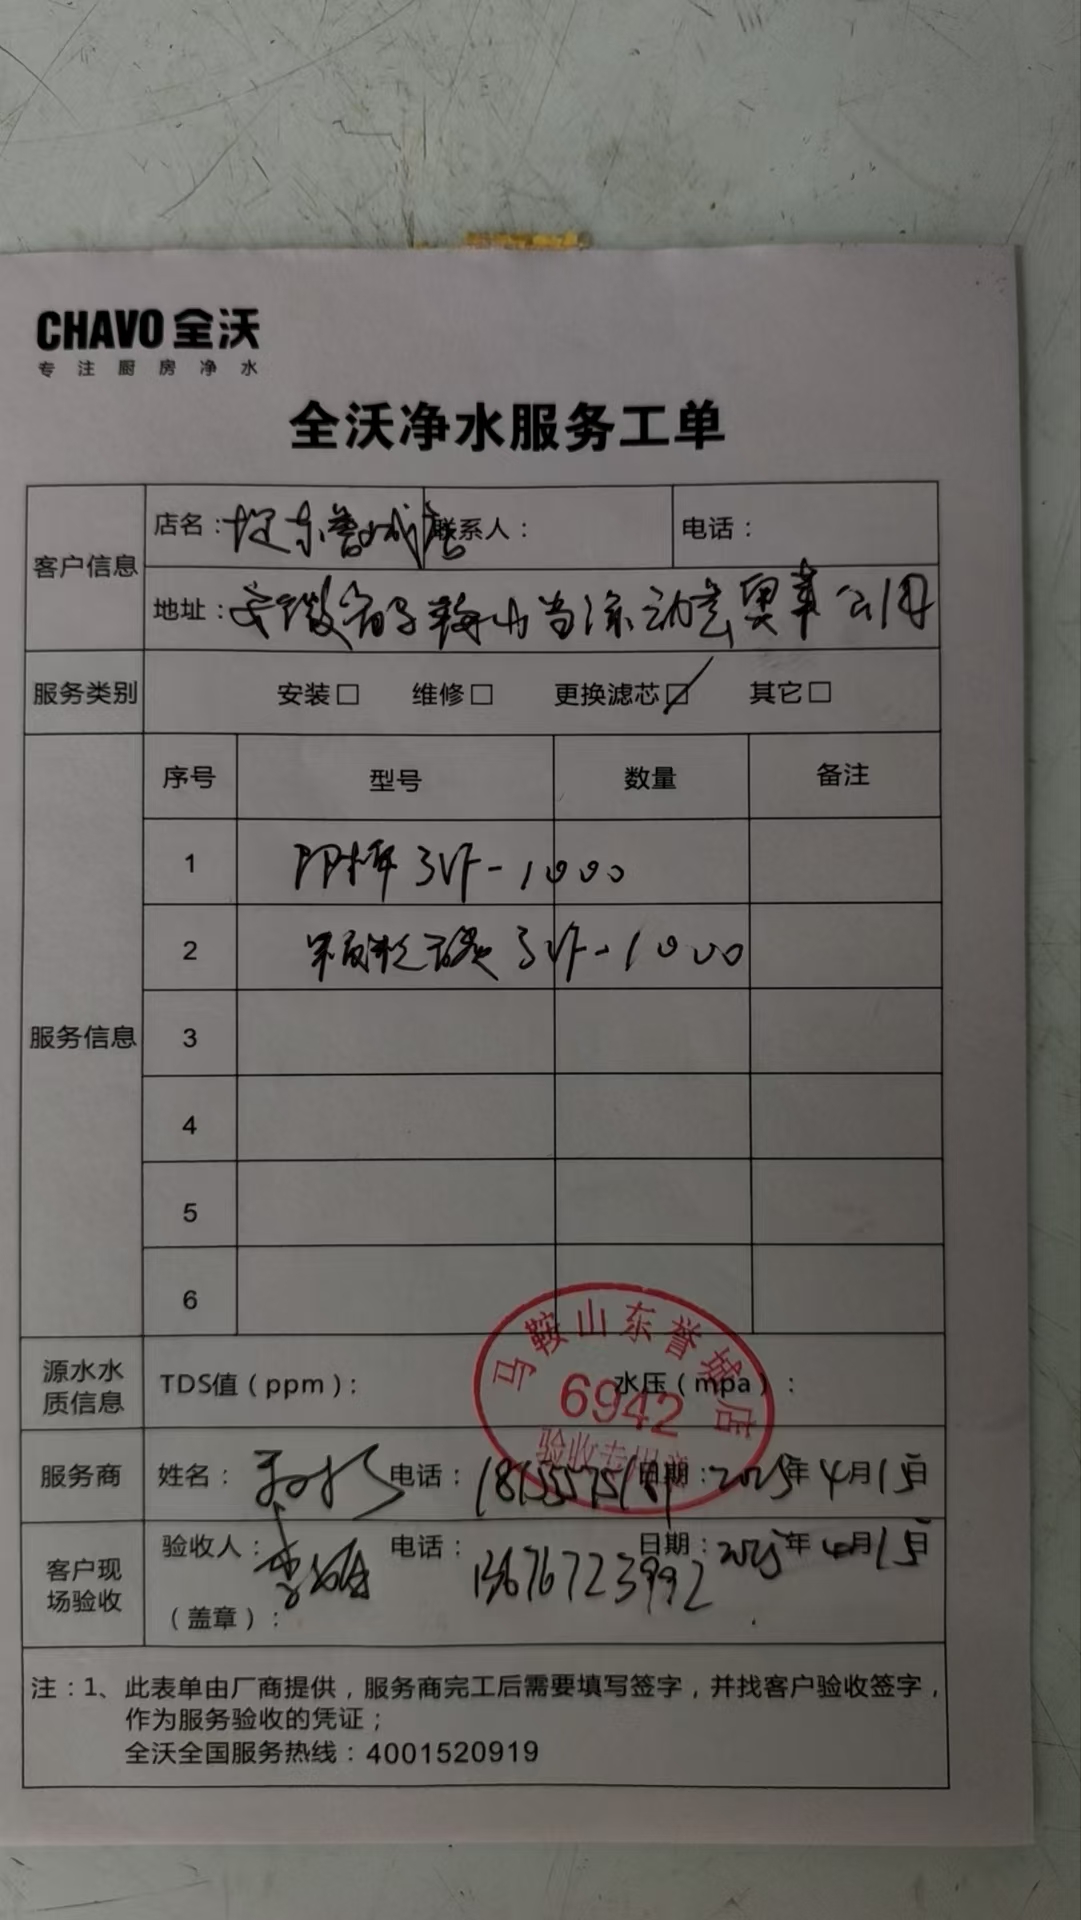 CHAVO 全沃
专注厨房净水
全沃净水服务工单
客户信息 店名: 东誉城店 联系人: 电话:
地址: 安徽省马鞍山当涂
服务类别 安装□ 维修□ 更换滤芯☑ 其它□
服务信息 序号 型号 数量 备注
1 PP棉 3VF-1000
2 3VF-1000
3
4
5
6
马鞍山东誉城店
6942
验收专用章
源水水质信息 TDS值(ppm): 水压(mpa):
服务商 姓名: 电话: 日期: 2025年4月15日
客户现场验收 验收人: 电话: 13676723992 日期: 2025年4月15日
(盖章):
注:1、此表单由厂商提供,服务商完工后需要填写签字,并找客户验收签字,
作为服务验收的凭证;
全沃全国服务热线:4001520919